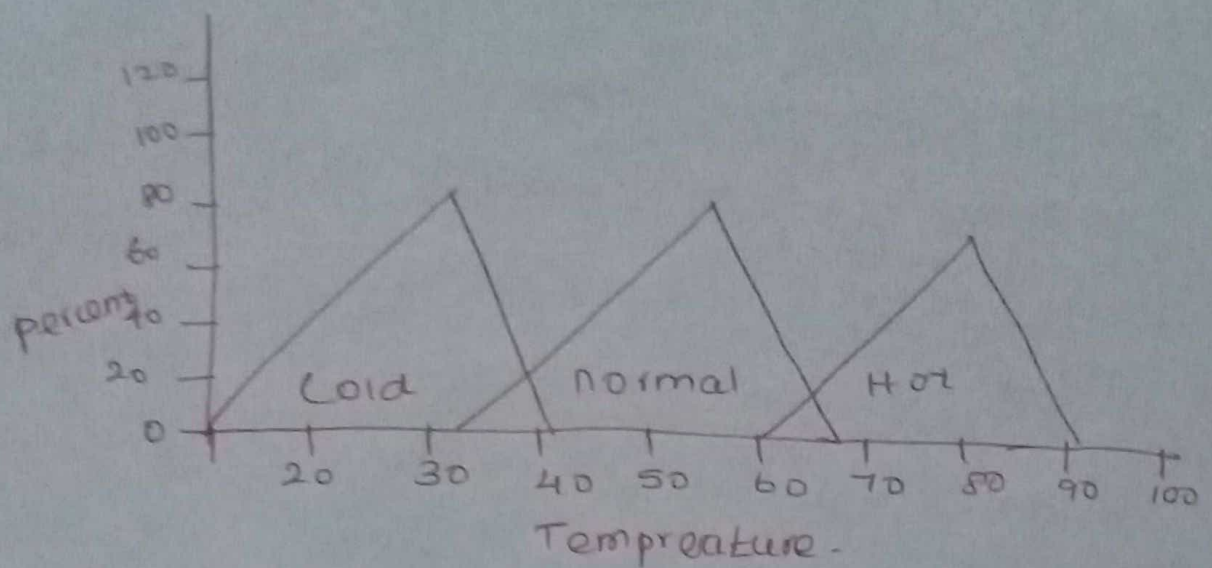 120
100
80
60
percent 40
20
Cold normal Hot
0
20 30 40 50 60 70 80 90 100
Tempreature.